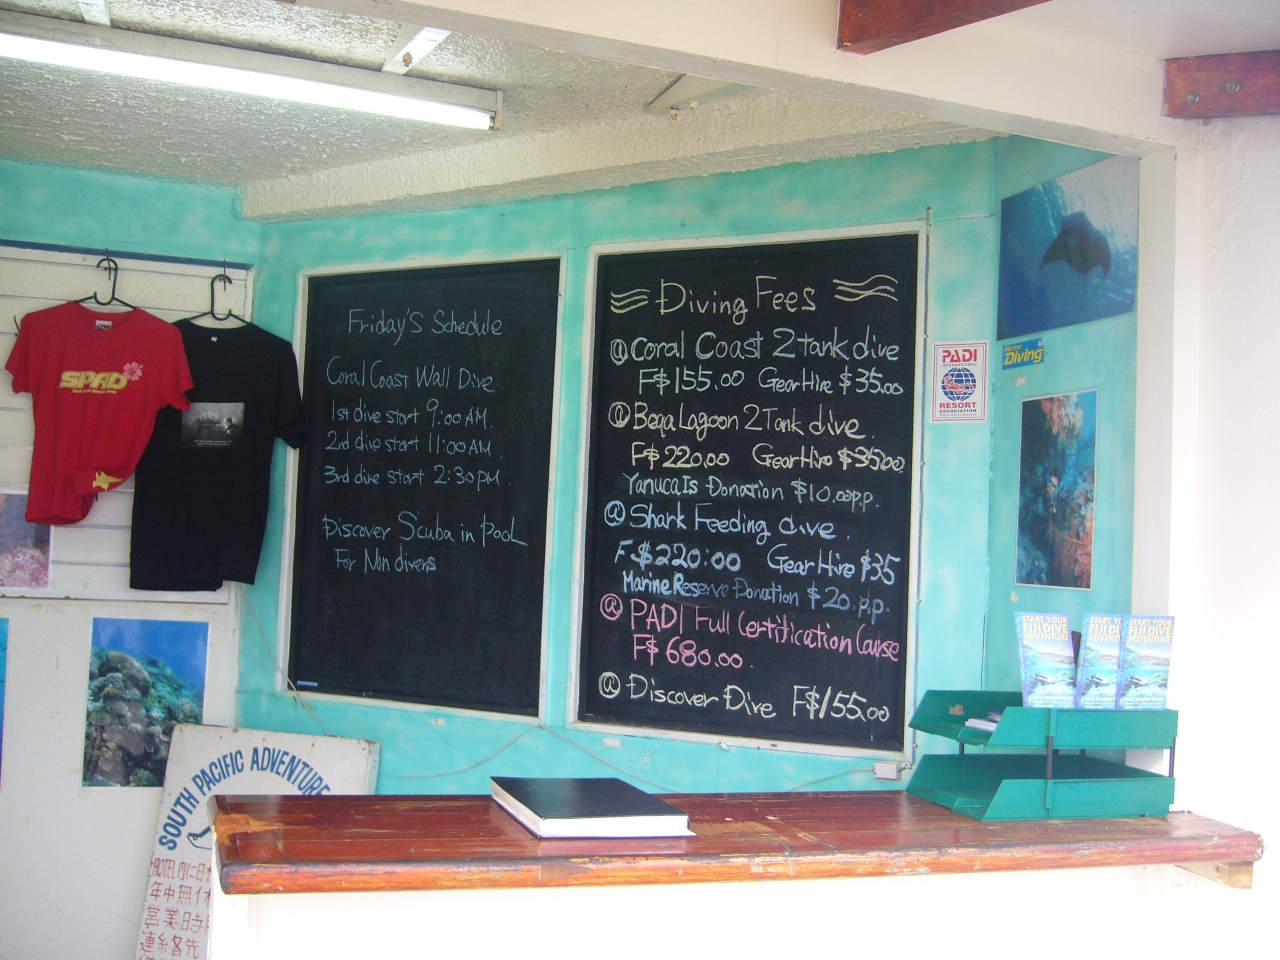 SPAD
Friday's Schedule
Coral Coast Wall Dive
1st dive start 9:00 AM.
2nd dive start 11:00 AM.
3rd dive start 2:30 PM.
Discover Scuba in Pool
For Non divers
Diving Fees
@ Coral Coast 2 tank dive
F$155.00 Gear Hire $35.00
@ Beqa Lagoon 2 Tank dive.
F$220.00 Gear Hire $35.00
Yanuca Is Donation $10.00 p.p.
@ Shark Feeding dive.
F$220:00 Gear Hire $35
Marine Reserve Donation $20. p.p.
@ PADI Full Certification Course
F$680.00.
@ Discover Dive F$155.00
PADI
INTERNATIONAL
RESORT
ASSOCIATION
Diving
START YOUR
FIJI DIVE
ADVENTURE
START YOUR
FIJI DIVE
ADVENTURE
START YOUR
FIJI DIVE
ADVENTURE
SOUTH PACIFIC ADVENTURE
HOTEL内に日
年中無休
営業時
連絡各先